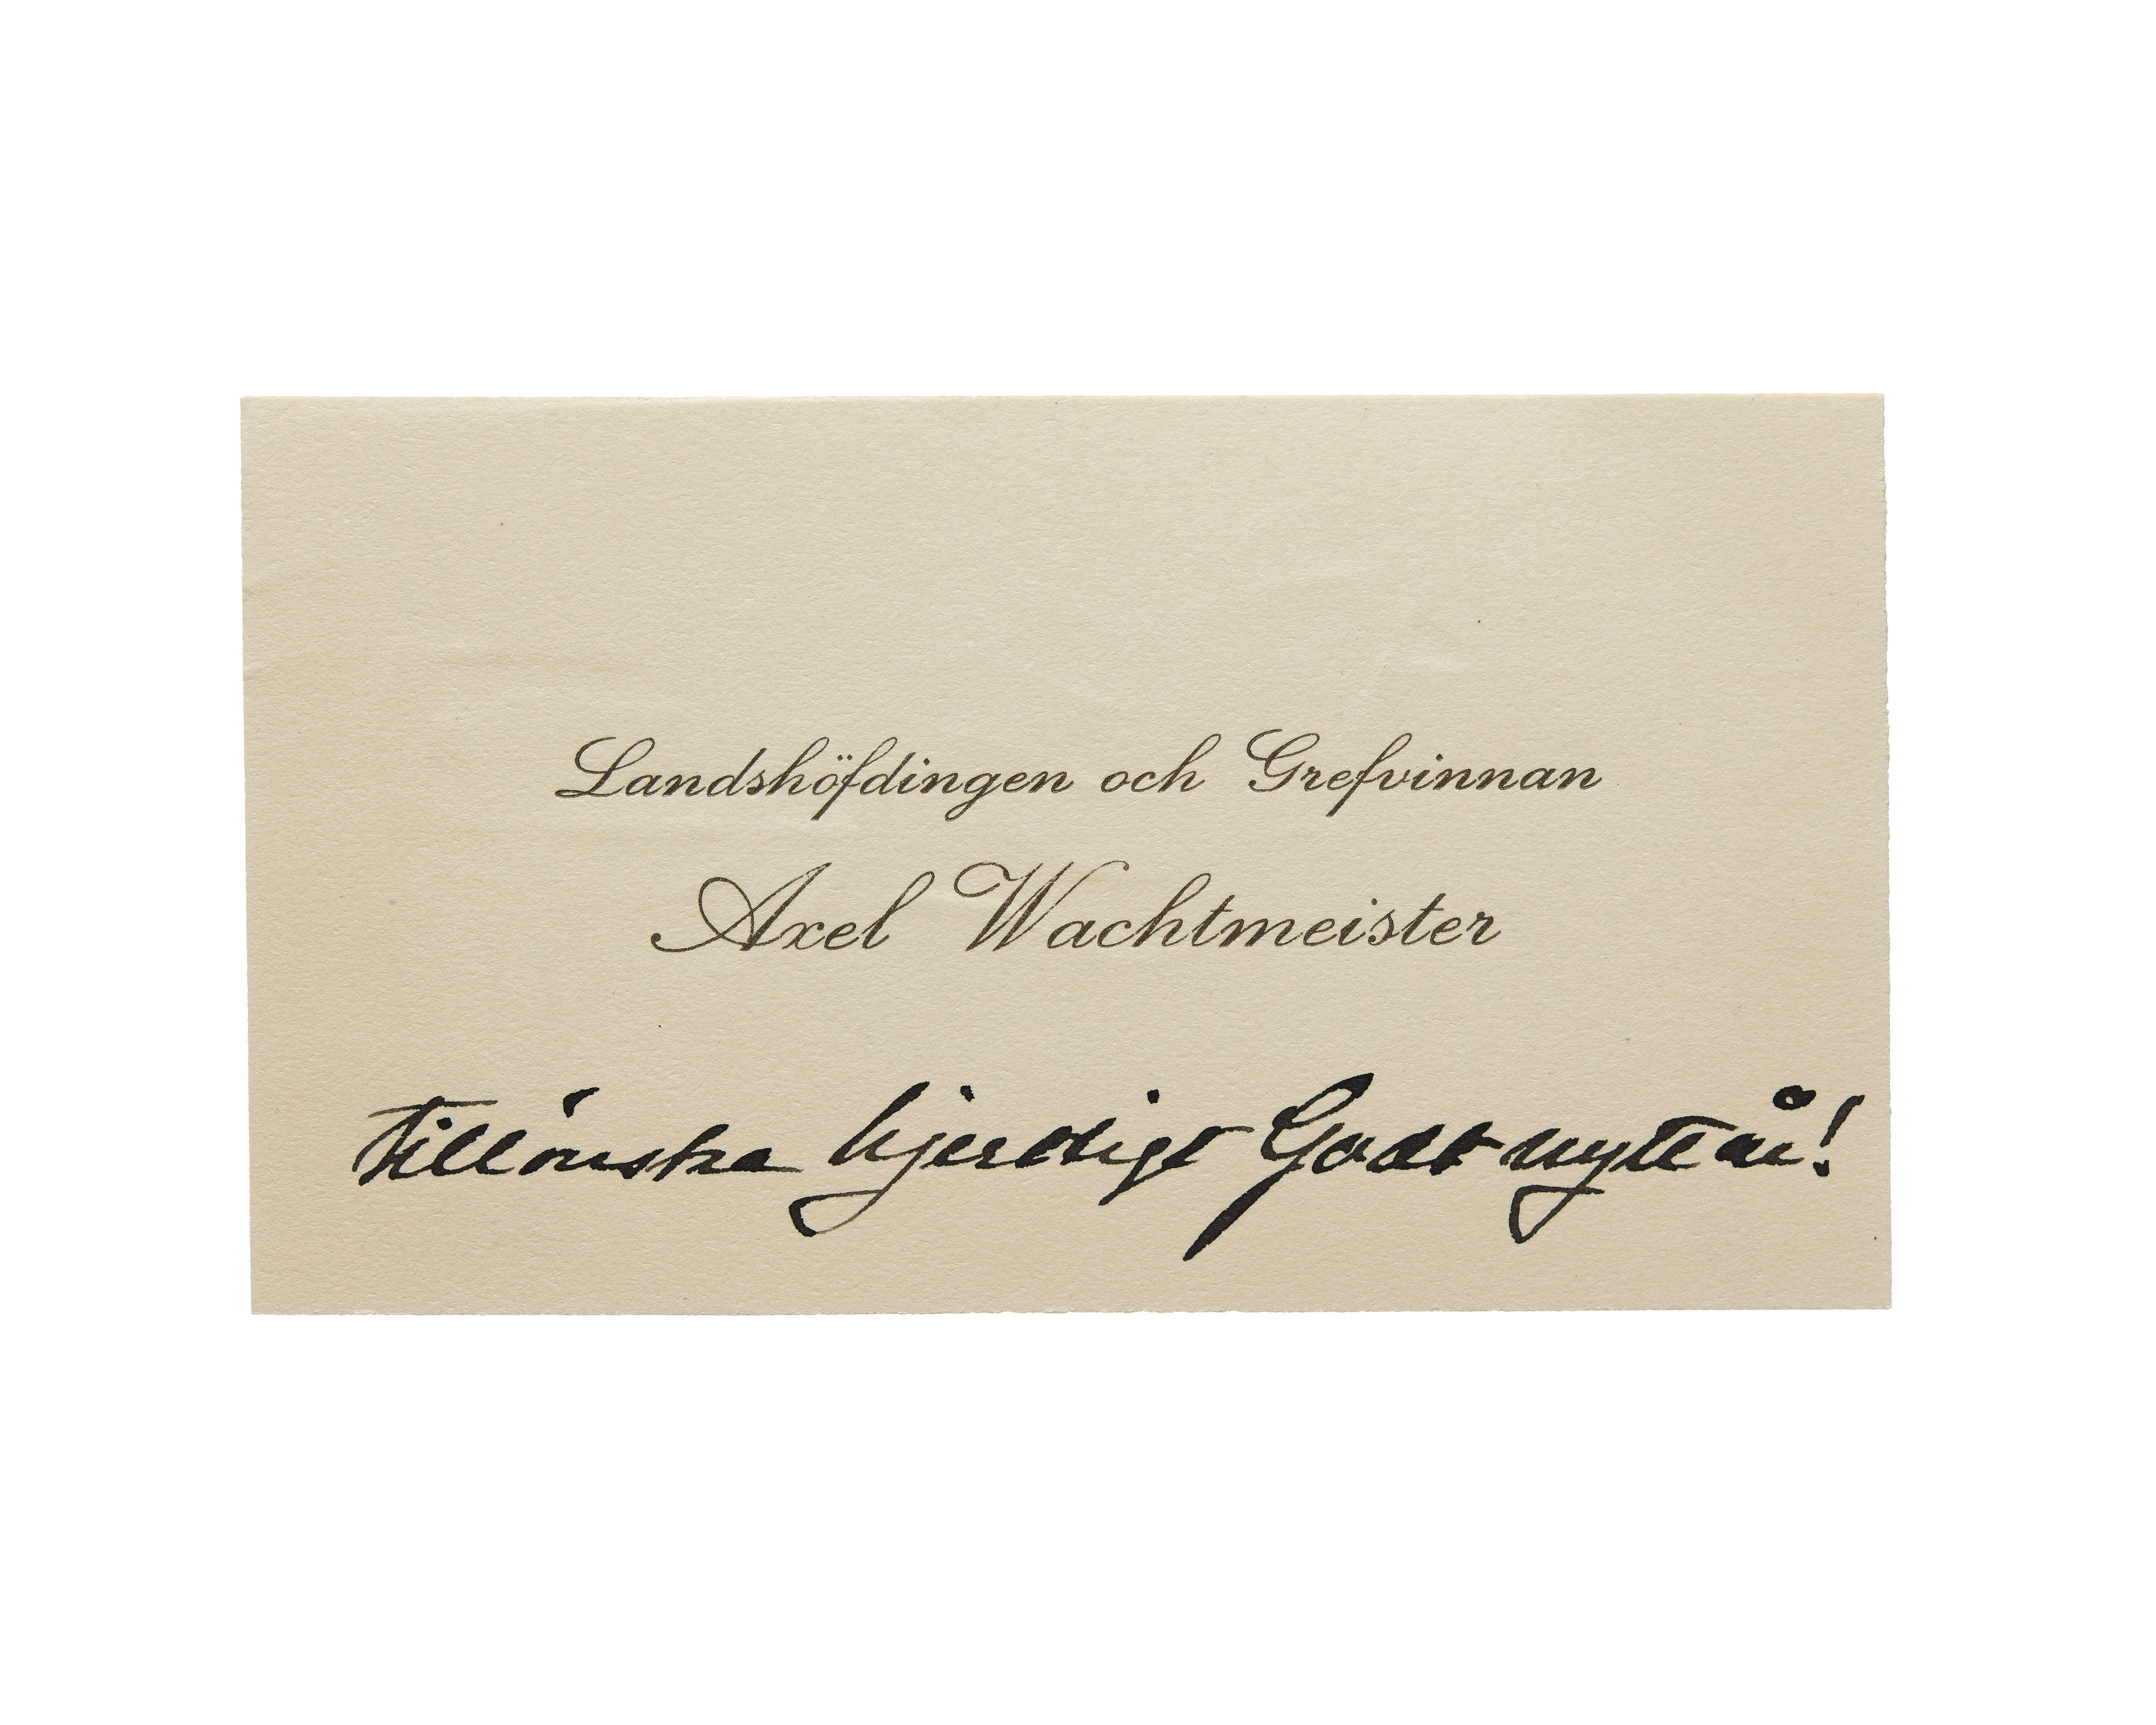 Landshöfdingen och Grefvinnan
Axel Wachtmeister
tillönska hjerdligt Godt nytt år!